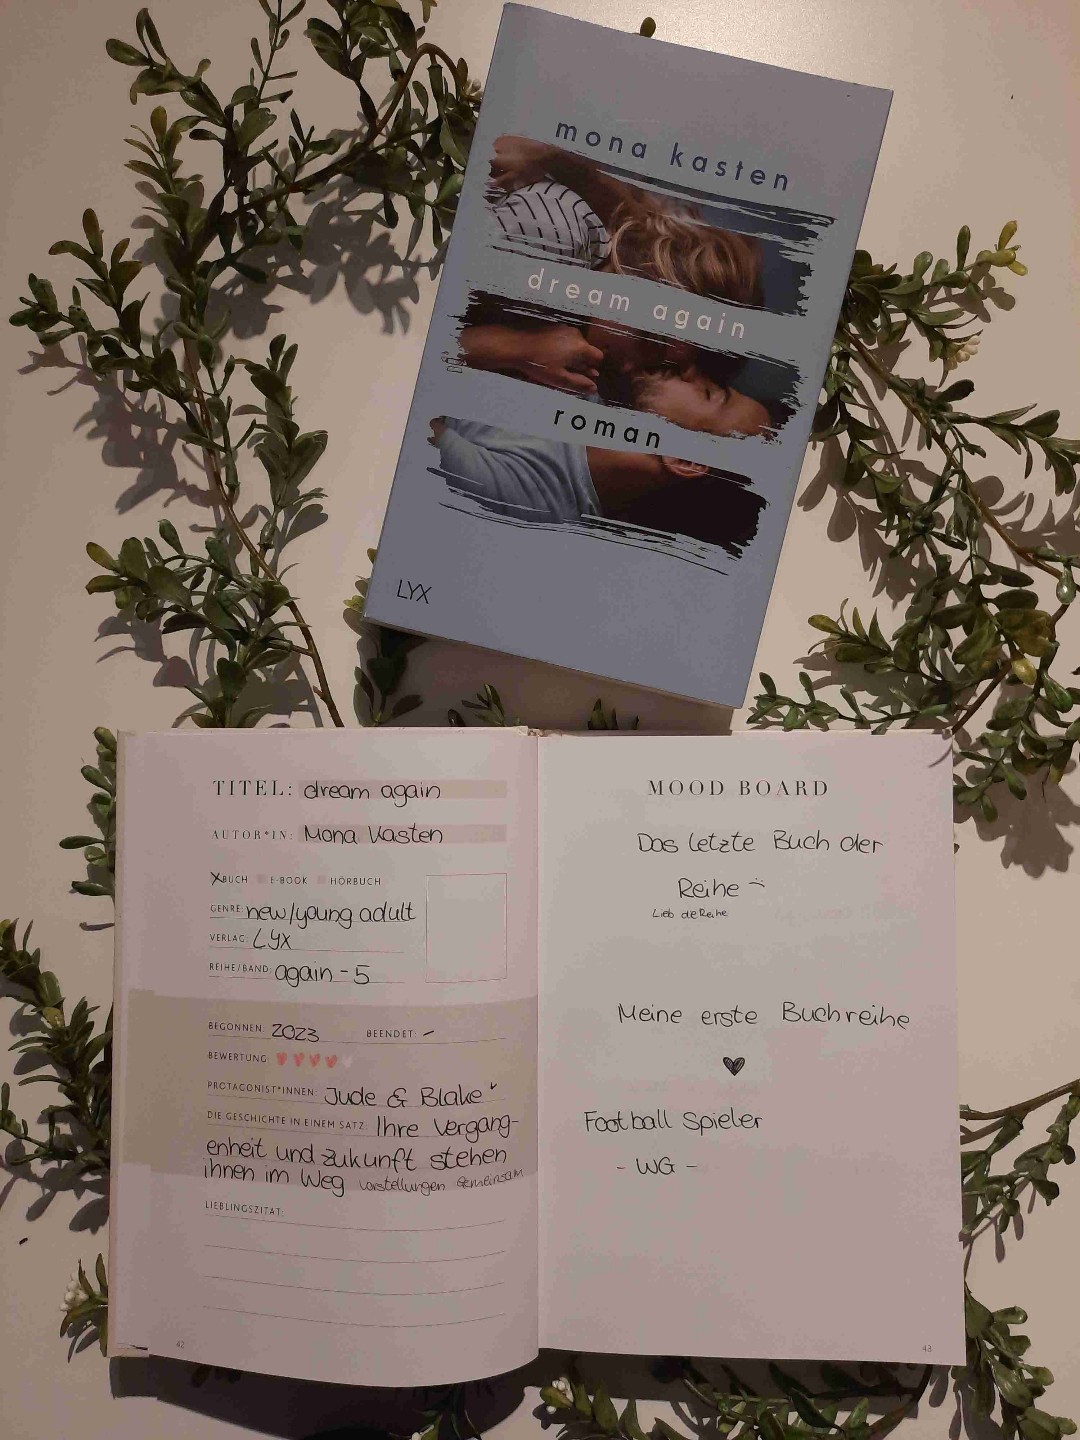 mona kasten
dream again
roman
LYX
TITEL: dream again
AUTOR*IN: Mona Kasten
X BUCH E-BOOK HÖRBUCH
GENRE: new/young adult
VERLAG: Lyx
REIHE/BAND: again - 5
BEGONNEN: 2023 BEENDET: -
BEWERTUNG:
PROTAGONIST*INNEN: Jude & Blake
DIE GESCHICHTE IN EINEM SATZ: Ihre Vergang-
enheit und zukunft stehen
ihnen im Weg vorstellungen gemeinsam
LIEBLINGSZITAT:
42
MOOD BOARD
Das letzte Buch der
Reihe
Lieb de Reihe
Meine erste Buchreihe
Football Spieler
- WG -
43